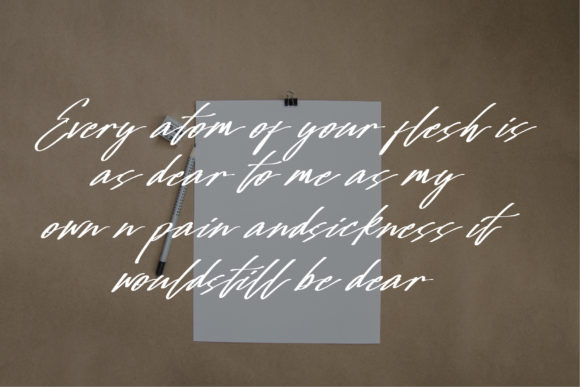 Every atom of your flesh is
as dear to me as my
own n pain andsickness it
wouldstill be dear